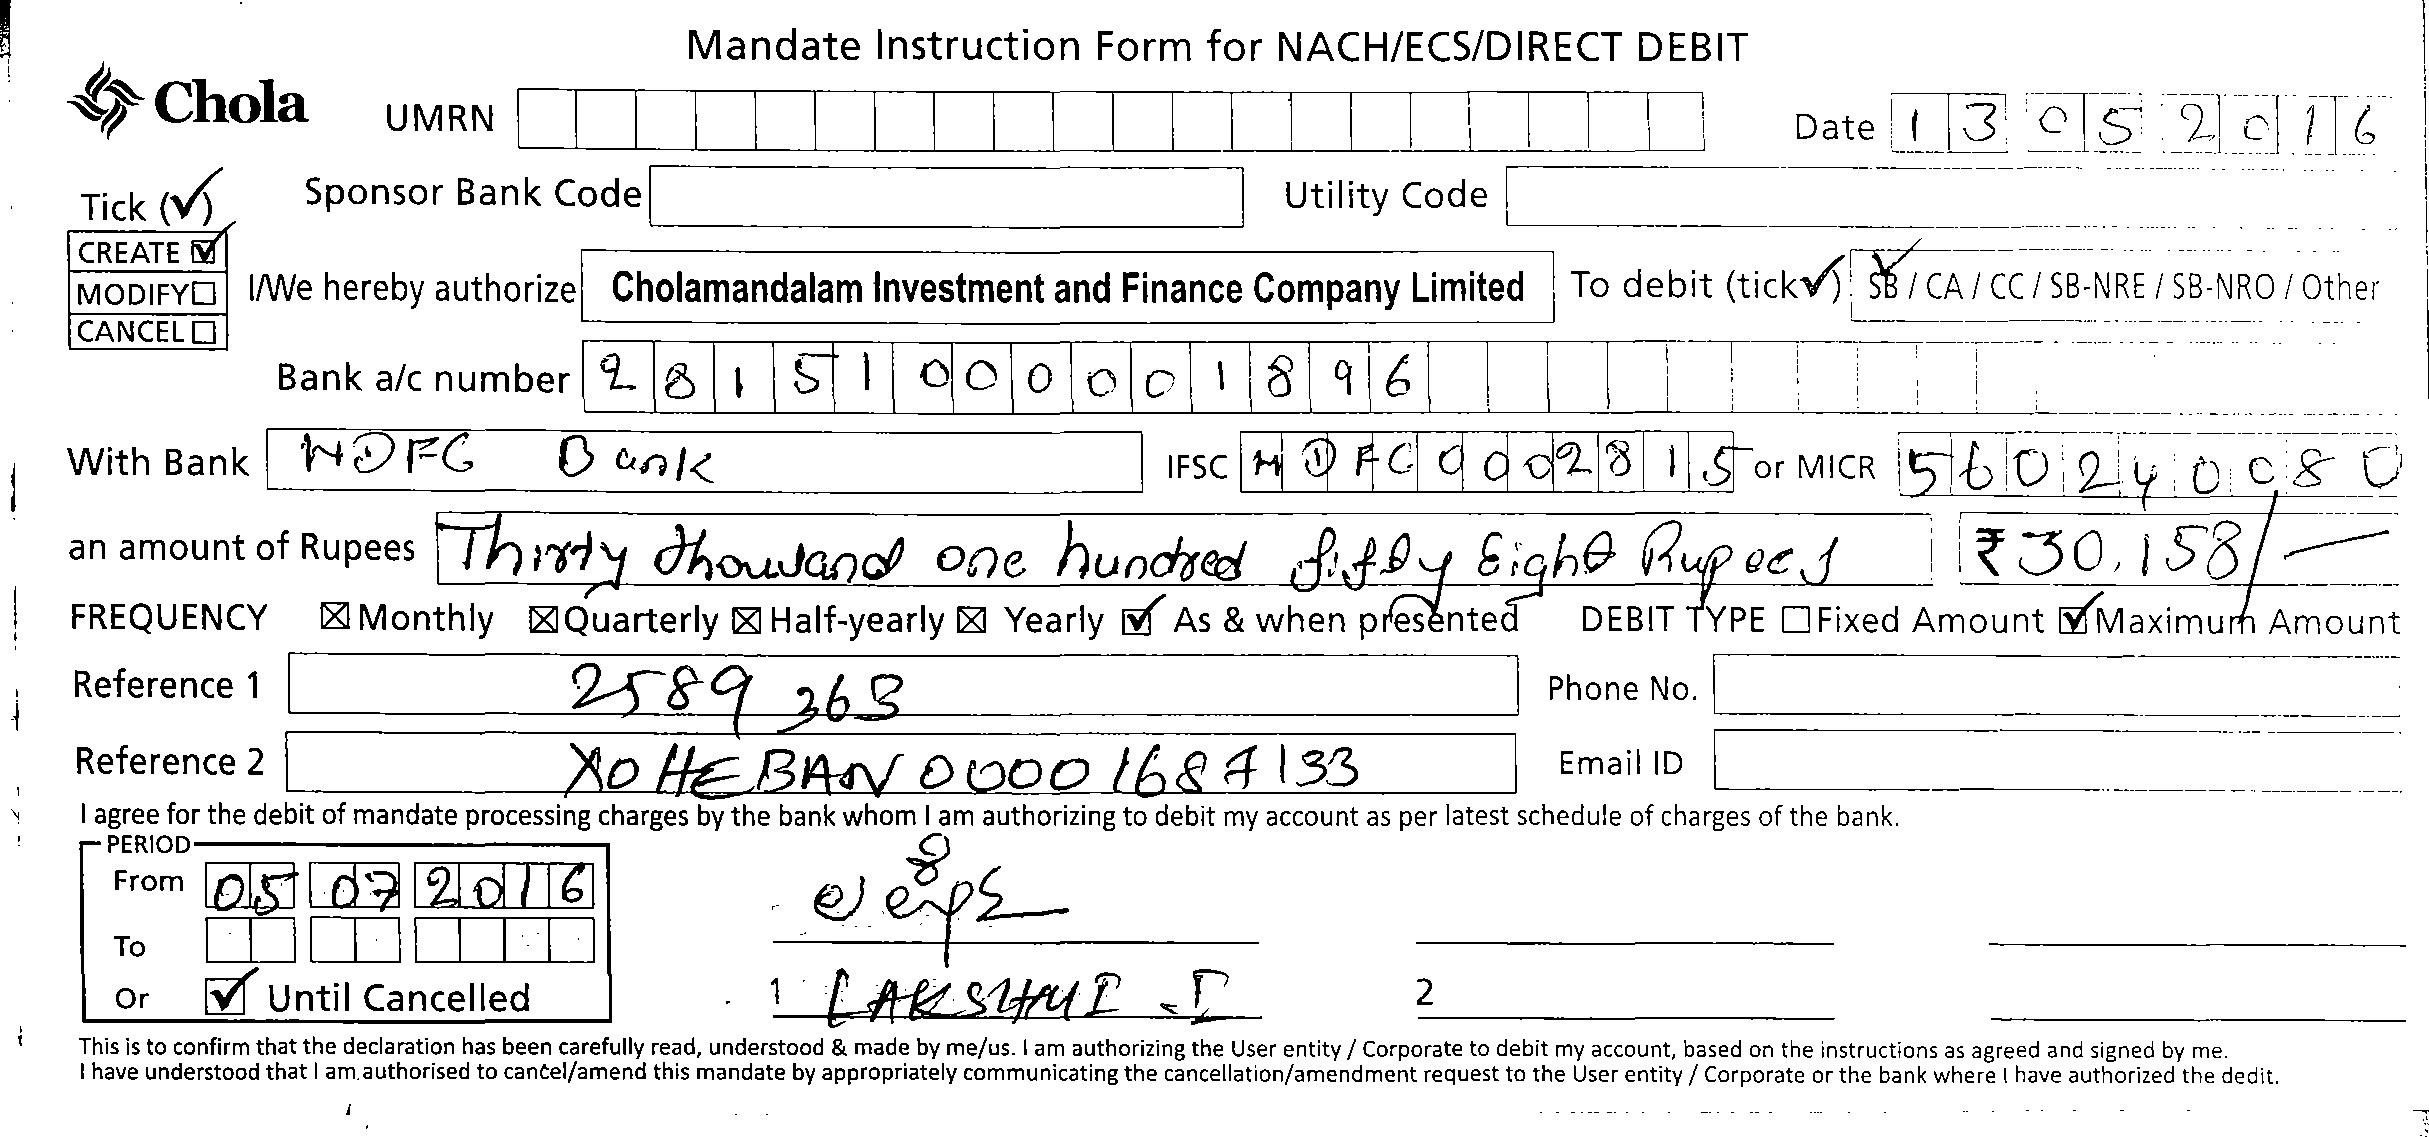 Mandate Instruction Form for NACH/ECS/DIRECT DEBIT
Chola UMRN Date 13052016
Tick (✓) Sponsor Bank Code Utility Code
CREATE ☑
MODIFY☐ I/We hereby authorize Cholamandalam Investment and Finance Company Limited To debit (tick✓) SB / CA / CC / SB-NRE / SB-NRO / Other
CANCEL☐
Bank a/c number 28151000001896
With Bank HDFC Bank IFSC HDFC0002815 or MICR 560240080
an amount of Rupees Thirty thousand one hundred fifty Eight Rupees ₹30,158/-
FREQUENCY ☒ Monthly ☒ Quarterly ☒ Half-yearly ☒ Yearly ☑ As & when presented DEBIT TYPE ☐ Fixed Amount ☑ Maximum Amount
Reference 1 2589363 Phone No.
Reference 2 X0HEBAN00001687133 Email ID
I agree for the debit of mandate processing charges by the bank whom I am authorizing to debit my account as per latest schedule of charges of the bank.
PERIOD
From 05 07 2016
To
Or ☑ Until Cancelled
1 LAKSHMI .I 2
This is to confirm that the declaration has been carefully read, understood & made by me/us. I am authorizing the User entity / Corporate to debit my account, based on the instructions as agreed and signed by me.
I have understood that I am authorised to cancel/amend this mandate by appropriately communicating the cancellation/amendment request to the User entity / Corporate or the bank where I have authorized the dedit.